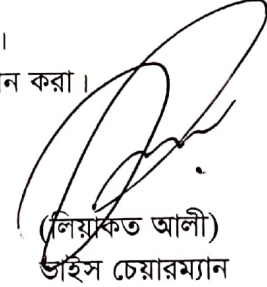 ।
ন করা।
(লিয়াকত আলী)
ভাইস চেয়ারম্যান